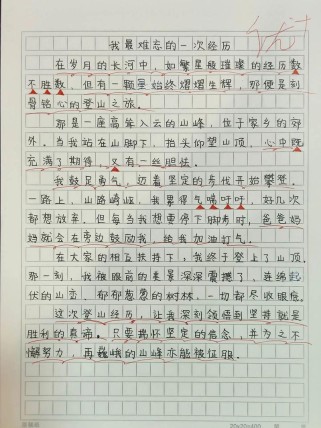 我最难忘的一次经历
在岁月的长河中，如繁星般璀璨的经历数
不胜数，但有一颗星始终熠熠生辉，那便是刻
骨铭心的登山之旅。
那是一座高耸入云的山峰，位于家乡的郊
外。当我站在山脚下，抬头仰望山顶，心中既
充满了期待，又有一丝胆怯。
我鼓足勇气，迈着坚定的步伐开始攀登。
一路上，山路崎岖，我累得气喘吁吁，好几次
都想放弃，但每当我想要停下脚步时，爸爸妈
妈就会在旁边鼓励我，给我加油打气。
在大家的相互扶持下，我终于登上了山顶，
那一刻，我被眼前的美景深深震撼了，连绵起
伏的山峦，郁郁葱葱的树林，一切都尽收眼底。
这次登山经历，让我深刻领悟到坚持就是
胜利的真谛。只要怀坚定的信念，并为之不
懈努力，再巍峨的山峰亦能被征服。
20×20=400